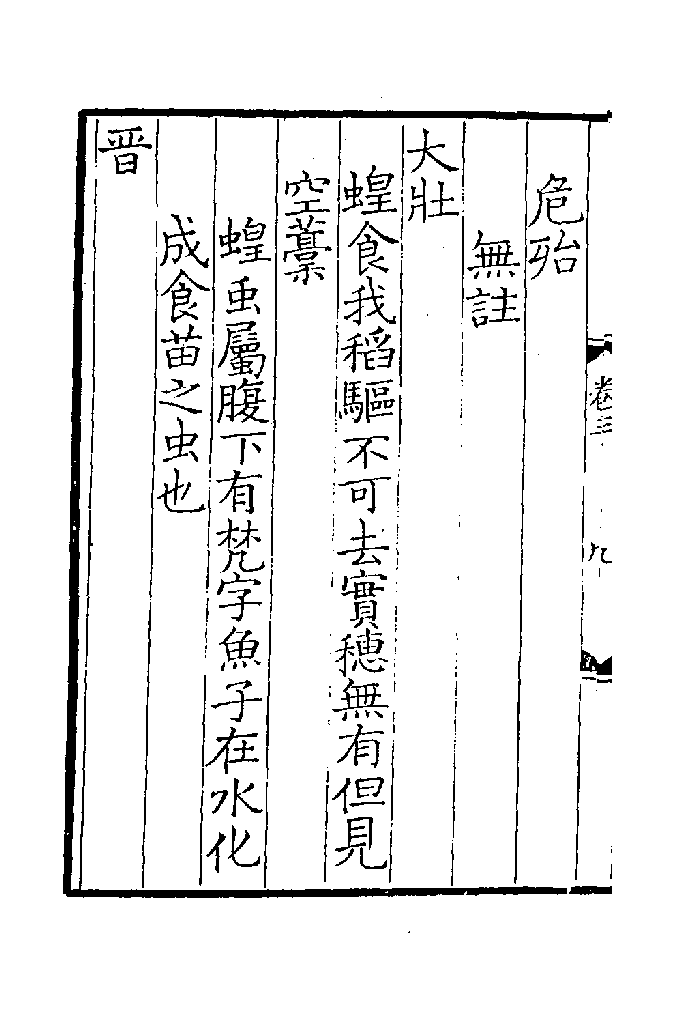 卷三 九
危殆
無註
大壯
蝗食我稻驅不可去實穗無有但見
空藁
蝗虫屬腹下有梵字魚子在水化
成食苗之虫也
晋